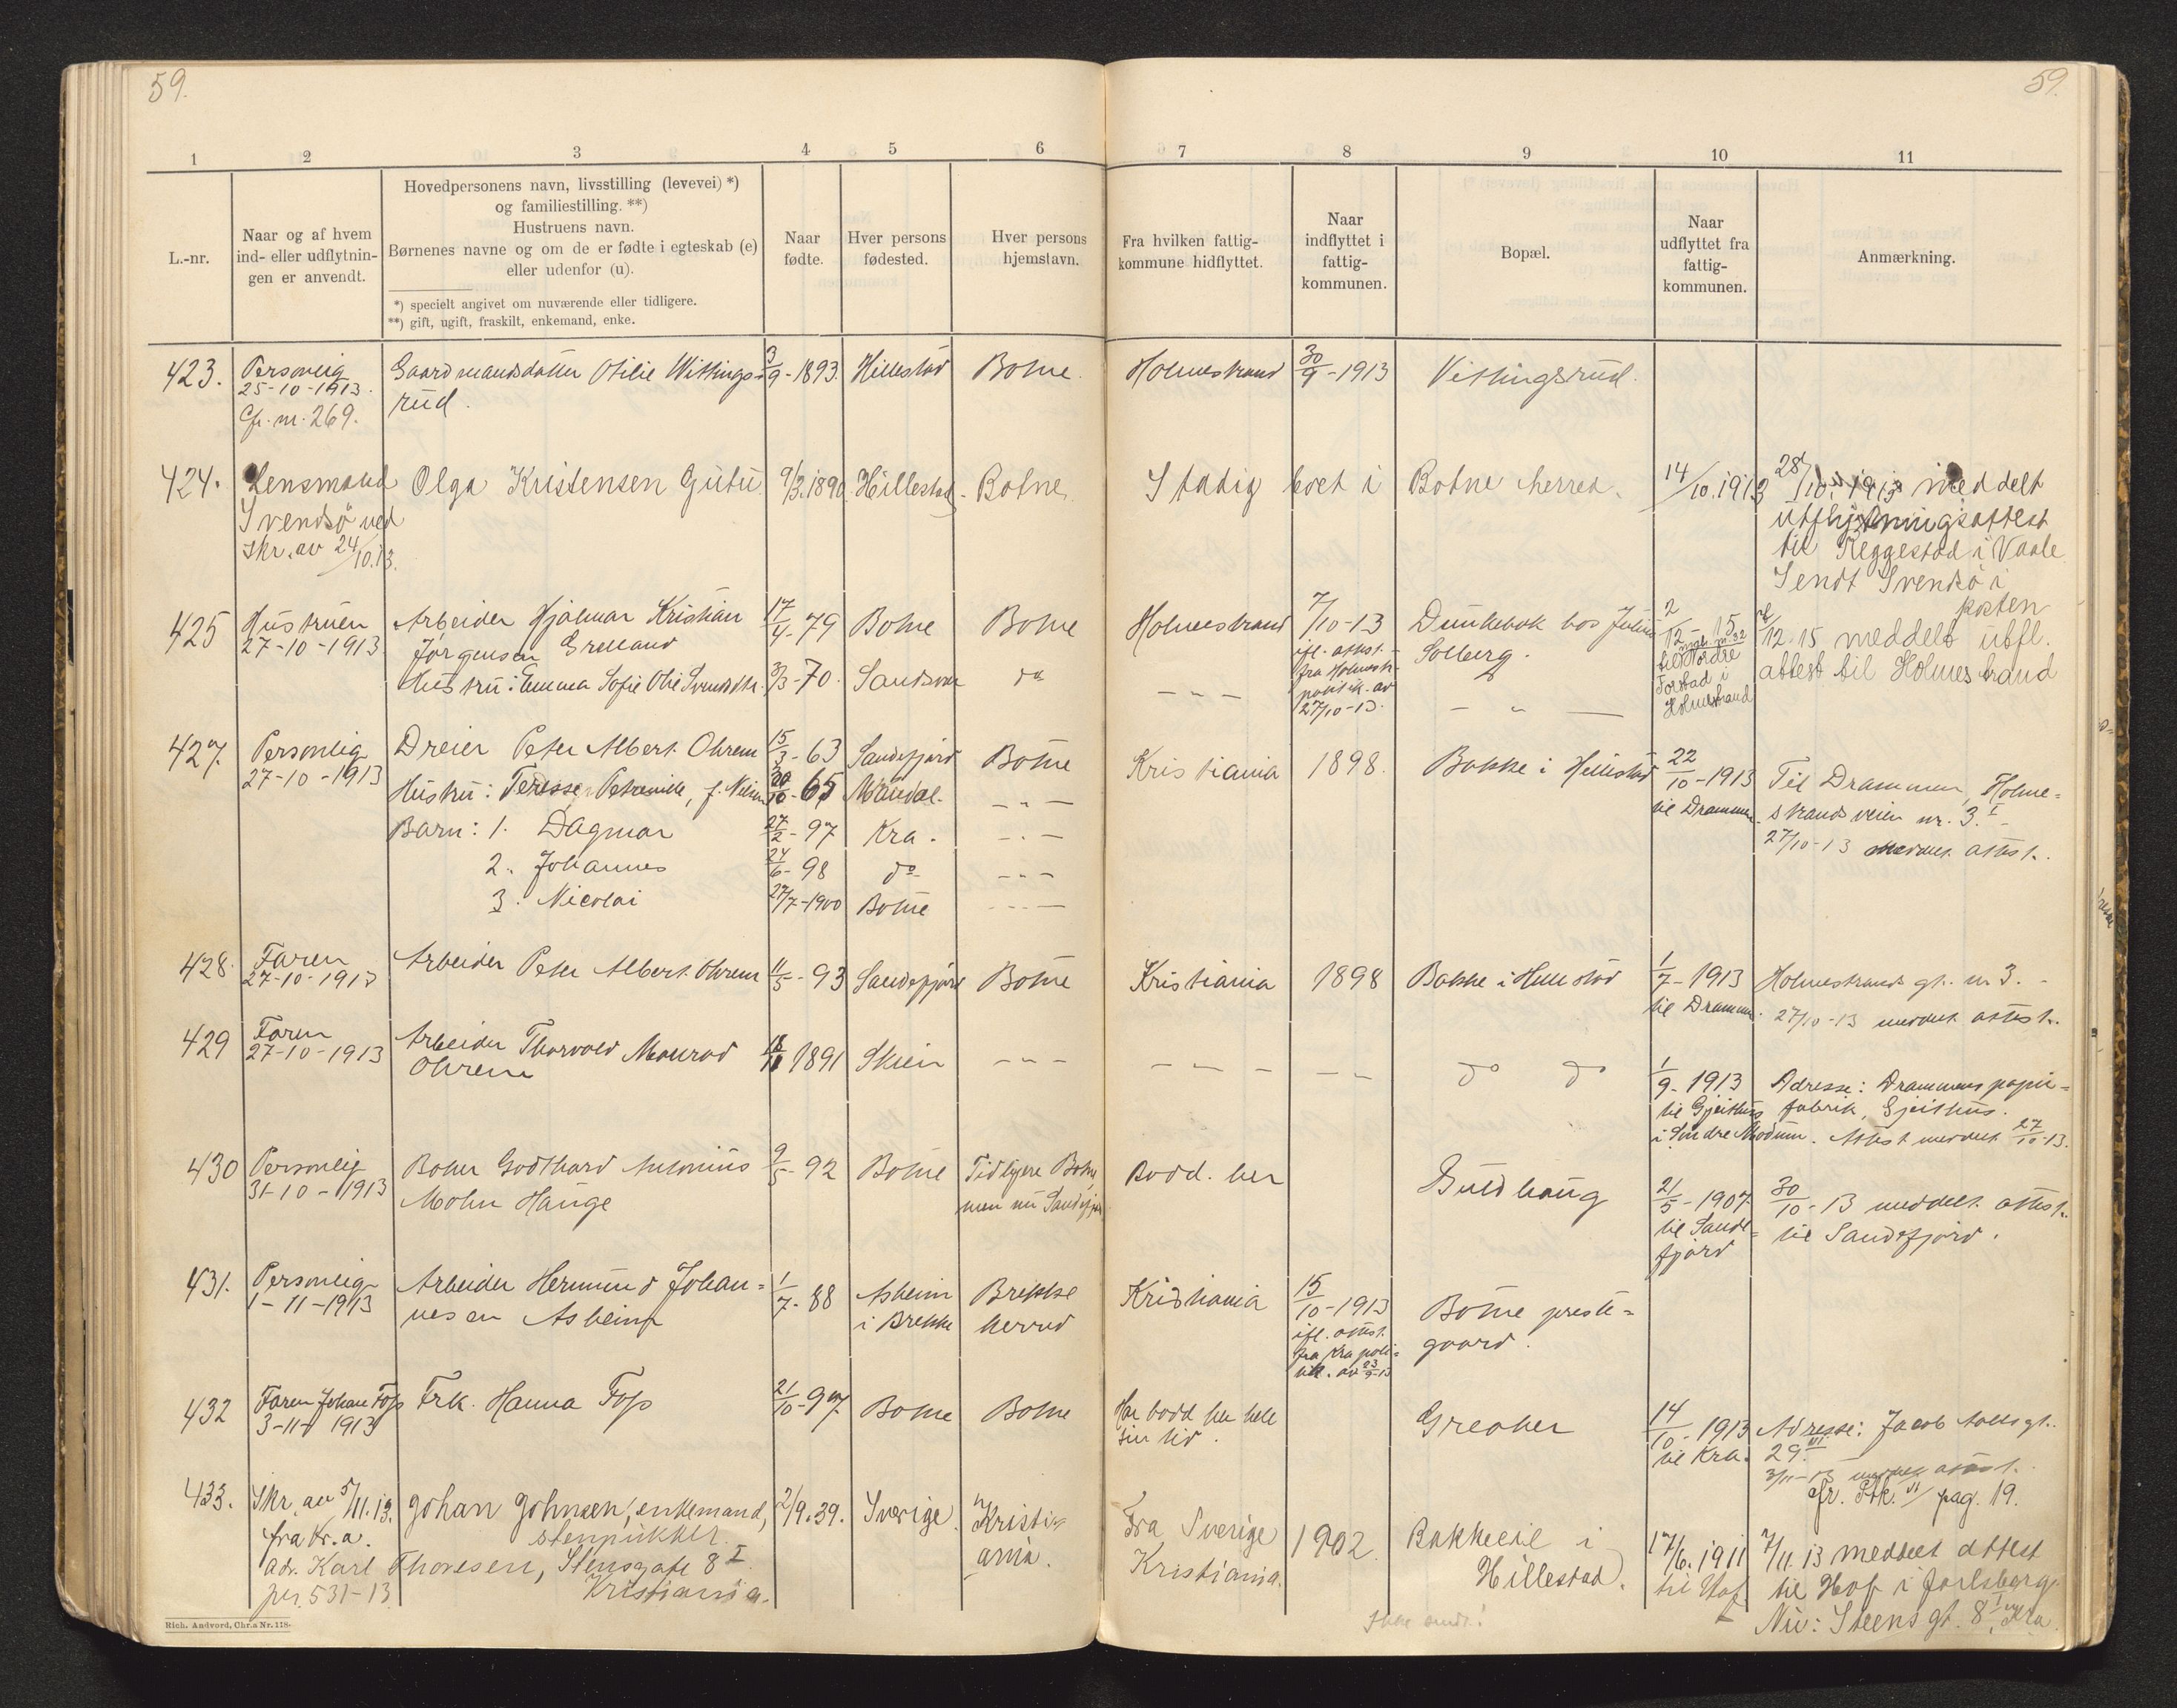 59.
59.
1
2
3
4
5
6
7
8
9
10
11
L.-nr.
Naar og af hvem
ind- eller udflytnin-
gen er anvendt.
Hovedpersonens navn, livsstilling (levevei) *)
og familiestilling. **)
Hustruens navn.
Børnenes navne og om de er fødte i egteskab (e)
eller udenfor (u).
*) specielt angivet om nuværende eller tidligere.
**) gift, ugift, fraskilt, enkemand, enke.
Naar
fødte.
Hver persons
fødested.
Hver persons
hjemstavn.
Fra hvilken fattig-
kommune hidflyttet.
Naar
indflyttet i
fattig-
kommunen.
Bopæl.
Naar
udflyttet fra
fattig-
kommunen.
Anmærkning.
423. Personlig Gaardmandsdatter Otilie Wittings- 3/9-1893. Hillestad Botne. Holmestrand 30/9-1913 Vittingsrud.
25-10-1913. rud.
Cfr. nr. 269.
424. Lensmand Olga Kristensen Gutu 9/3.1890. Hillestad. Botne. Stadig boet i Botne herred. 14/10.1913 28/10.1913 meddelt
Svendsø ved utflytningsattest
skr. av 24/10.13. til Reggestad i Vaale
Sendt Svendsø i
posten
425 Hustruen Arbeider Hjalmar Kristian 17/4-79 Botne Botne Holmestrand 7/10-13 Dunkebok hos Julius 2/12-15 2/12.15 meddelt utfl.
27-10-1913 Jørgensen Grelland ifl. attest. Solberg. til Nordre attest til Holmestrand
Hustru: Emma Sofie Olie Svendsdtr. 3/3-70. Sandsvær do - " - fra Holmestr. - " - Torstad i
politik. av Holmestrand
27/10-13.
427. Personlig Dreier Peter Albert Ohrem 15/3-63 Sandefjord Botne Kristiania 1898. Bakke i Hillestad 22/10-1913 Til Drammen, Holme-
27-10-1913 Hustru: Teresse Petrenille, f. Nilsen 20/10-65 Mandal. - " - til Drammen. strandsveien nr. 3. I -
Barn: 1. Dagmar 27/2-97 Kra. - " - 27/10-13 meddelt attest.
2. Johannes 24/6-98 do - " -
3. Nicolai 27/7-1900 Botne - " -
428. Faren Arbeider Peter Albert Ohrem 11/5-93 Sandefjord Botne Kristiania 1898 Bakke i Hillestad 1/7-1913 Holmestrands gt. nr 3. -
27-10-1913 til Drammen. 27/10-13 meddelt attest.
429 Faren Arbeider Thorvald Monrad 18/11 1891 Skien - " - - " - - " - do do 1/9-1913 Adresse: Drammens papir-
27-10-1913 Ohrem til Gjeithus fabrik, Gjeithus.
i Søndre Modum. Attest meddelt 27/10-13.
430 Personlig Baker Godthard Antonius 9/5-92 Botne Tidligere Botne, Bodd her Buldhaug 21/5-1907 30/10-13 meddelt attest.
31-10-1913 Mohn Hauge men nu Sandefjord til Sande- til Sandefjord.
fjord
431. Personlig Arbeider Hermund Johan- 1/7-88 Asheim Brekke Kristiania 15/10-1913 Botne preste-
1-11-1913 nesen Asheim i Brekke herred ifl. attest. gaard.
fra Kra poli-
tik. av 23/9-13
432 Faren Johan Foss Frk. Hanna Foss 21/10-97. Botne Botne Har bodd her hele Greaker 14/10-1913 Adresse: Jacob Aalls gt.
3-11-1913 sin tid. til Kra. 29. III
3/11-13 meddelt attest.
cfr. Prtk. VI pag. 19.
433. Skr. av 5/11.13. Johan Johnsen, enkemand, 2/9.39. Sverige. Kristi- Fra Sverige 1902. Bakkeeie i 17/6.1911 7/11 13 meddelt attest
fra Kr.a. stenpukker. ania. Kristiania. Hillestad. til Hof til Hof i Jarlsberg.
adr. Karl Thoresen, Stensgate 8 I Nu: Steensgt. 8 I, Kra
pr. 531-13 Kristiania.
Ikke sendt!
Rich. Andvord, Chr.a Nr. 118.